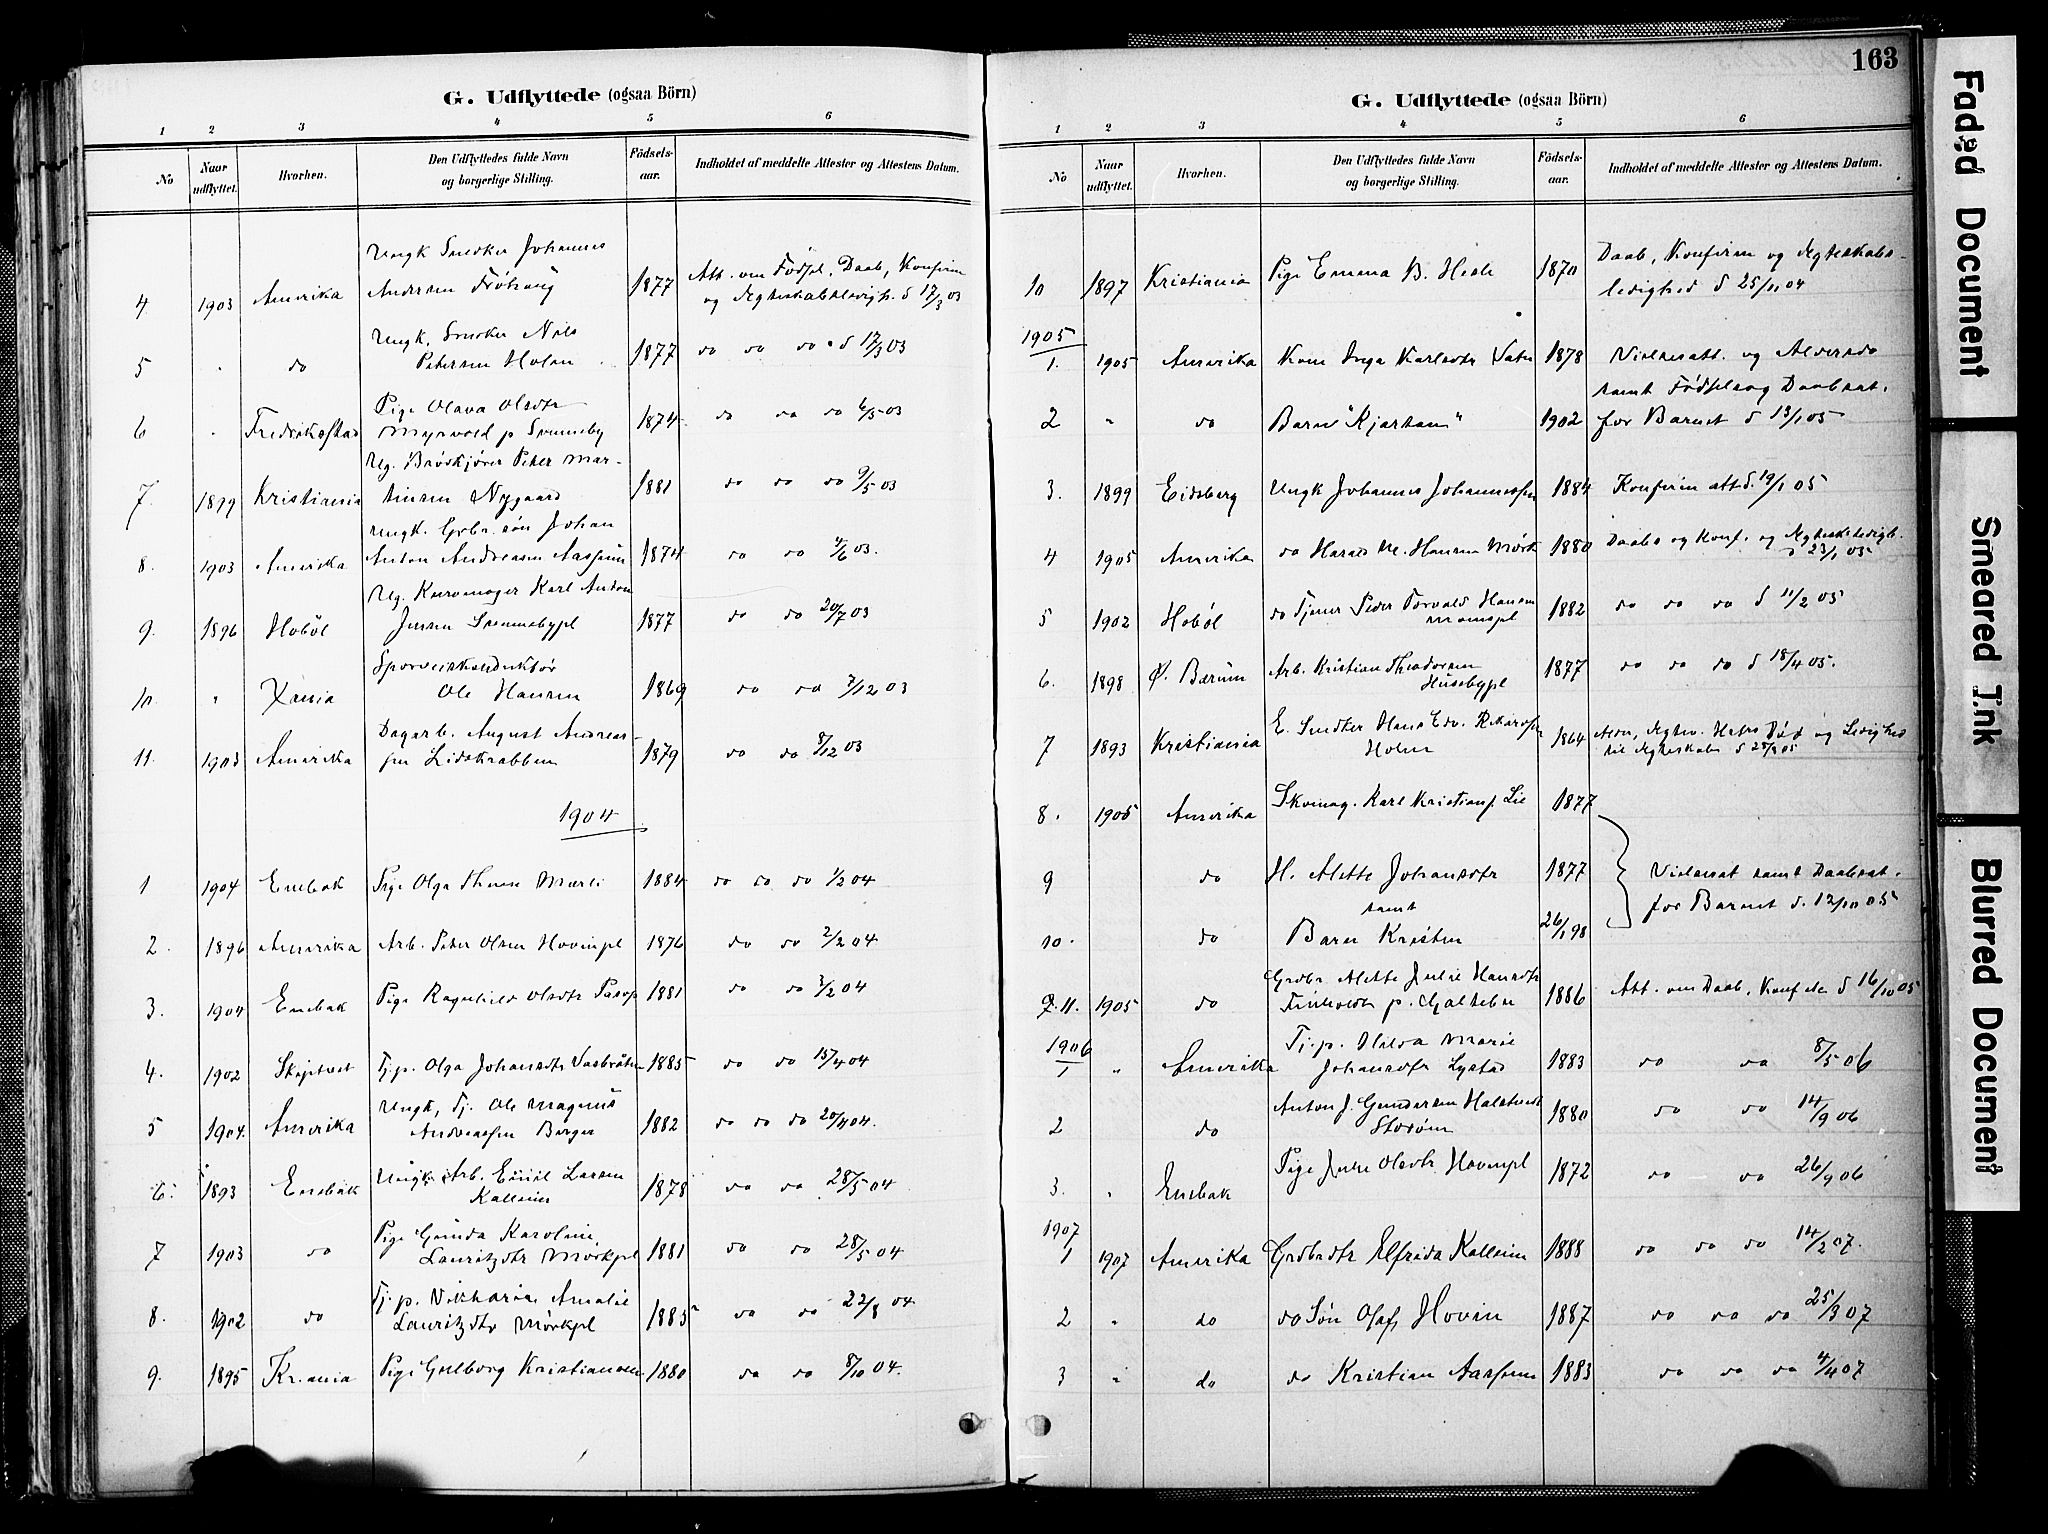 G. Udflyttede (ogsaa Börn)
1 2 3 4 5 6
No Naar udflyttet. Hvorhen. Den Udflyttedes fulde Navn og borgerlige Stilling. Födsels-aar. Indholdet af meddelte Attester og Attestens Datum.
Ungk Snedker Johannes
4 1903 Amerika Andersen 1877 Att. om Fødsel, Daab, Konfirm
og Ægteskabsledigh. d 17/3 03
Ungk. Snedker Nils
5 " do Petersen Holen 1877 do do do d 17/3 03
Pige Olava Olsdtr
6 " Fredrikstad Myrvold p Spenneby 1874 do do do 6/5 03
Ug. Brødkjører Peter Mar-
7. 1899 Kristiania tinsen Nygaard 1881 do do do 9/5 03
Ungk. Grbr. søn Johan
8. 1903 Amerika Anton Andreasen Aassum 1874 do do 4/6 03.
Ug. Kurvmager Karl Anton
9. 1896 Hobøl Jensen 1877 do do 20/7 03
Sporveiskonduktør
10. " Xania Ole Hansen 1869 do do 7/12 03
Dagarb. August Andreas
11. 1903 Amerika sen Lidskrabben 1879 do do 8/12 03
1904
1 1904 Enebak Pige Olga 1884 do do do 1/2 04
2. 1896 Amerika Arb. Peter Olsen Hovinpl 1876 do do 2/2 04
3. 1904 Enebak Pige Ragnhild Olsdtr 1881 do do 3/2 04
4. 1902 Skiptvet Tj.p. Olga Johansdtr 1885 do do 15/4 04
Ungk, Tj. Ole Magnus
5 1904. Amerika Andreassen Berger 1882 do do do 20/4 04.
6. 1893 Enebak Ungk. Arb. Emil Larsen 1878 do do 28/5 04
Kalleim
Pige Gunda Karoline
7 1903 do Lauritzdtr Mörkpl 1881 do do 28/5 04
Tj.p. Amalie
8. 1902 do Lauritzdtr Mörkpl 1885 do do 22/8 04
9. 1895 Kr.ania Pige Gulborg Kristiansen 1880 do do 8/10 04.
163
G. Udflyttede (ogsaa Börn)
1 2 3 4 5 6
No Naar udflyttet. Hvorhen. Den Udflyttedes fulde Navn og borgerlige Stilling. Födsels-aar. Indholdet af meddelte Attester og Attestens Datum.
10 1897 Kristiania Pige Emma B. 1870 Daab, Konfirm og Ægteskabs-
ledighed d 25/11 04
1905
1. 1905 Amerika Kone Inga Karlsdtr 1878 Vielsesatt. og
samt Fødsels og Daabsat.
2 " do Barn "Kjartan" 1902 for Barnet d 13/1 05
3. 1899 Eidsberg Ungk Johannes Johannessen 1884 Konfirm att d. 19/1 05
4 1905 Amerika do Harald M. Hansen Mørk 1880 Daabs og Konf. og Ægteskbledigh.
d 23/1 05
5 1902 Hobøl do Tjener Peder Torvald Hansen 1882 do do do d 11/2 05
6. 1898 Ø. Bærum Arb. Kristian Theodorsen 1877 do do do d 18/4 05.
Husebypl
7 1893 Kristiania E. Snedker Hans Edv. 1864
Holm
8. 1905 Amerika Skomag. Karl Kristians. Lie 1877
9 do H. Alette Johansdtr 1877 Vielsesat samt Daabsat.
samt for Barnet d. 12/10 05
10. do Barn Kristen 26/1 98
Grdbr Alette Julie Hansdtr
11. 1905 do p. 1886 Att. om Daab, Konf etc d 16/10 05
1906
1 " Amerika Tj.p. Hilda Marie
Johansdtr Lystad 1883 do do 8/5 06
2 do Anton J. Gundersen 1880 do do 14/9 06
3. " Enebak Pige Julie Olsdtr Hovinpl 1872 do do 26/9 06
1907
1 1907 Amerika Grdbrdtr Elfrida Kalleim 1888 do do do 14/2 07.
2 " do do Søn Olaf Hovin 1887 do do do 25/3 07
3 " do do Kristian Aassum 1883 do do do 4/4 07
Faded Document
Smeared Ink
Blurred Document